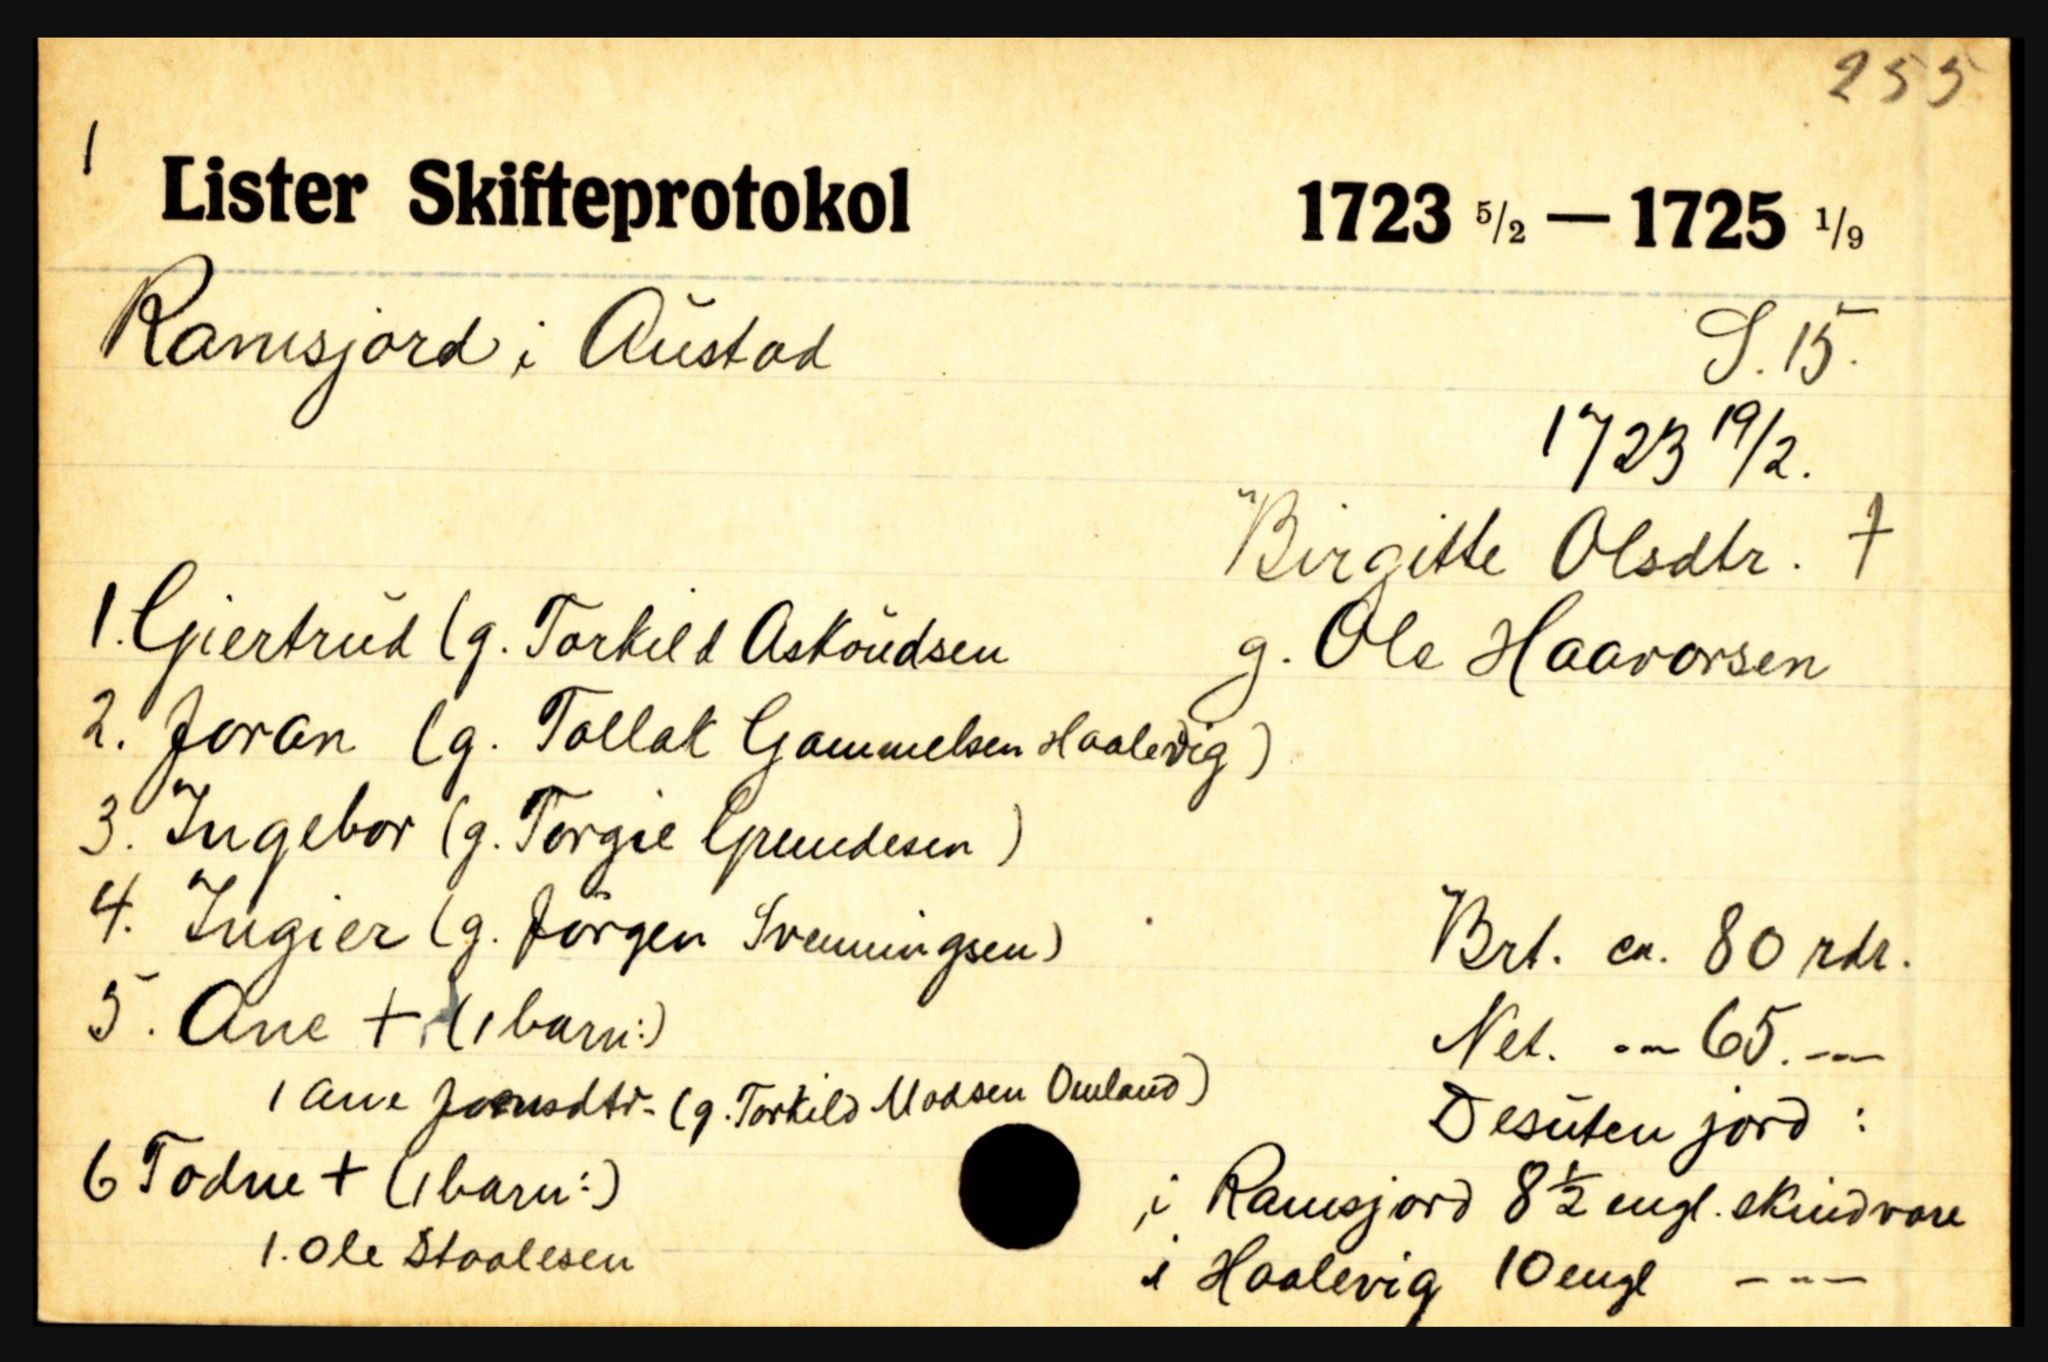 255
1
Lister Skifteprotokol 1723 5/2 — 1725 1/9
Ramsjord i Austad S. 15.
1723 19/2.
Birgitte Olsdtr. †
g. Ole Haavorsen
1. Giertrud (g. Torkild Askoudsen
2. Joran (g. Tollak Gammelsen Haalevig)
3. Ingebor (g. Torgie Gumdesen)
4. Ingier (g. Jörgen Svenningsen)
5. Ane + (1 barn:)
1 Ane Joensdtr. (g. Torkild Madsen Omland)
6 Todne + (1 barn:)
1. Ole Staalesen
Brt. ca. 80 rdr.
Net. -"- 65. -"-
Desuten jord :
i Ramsjord 8 1/2 engl. skindvare
i Haalevig 10 engl -"-